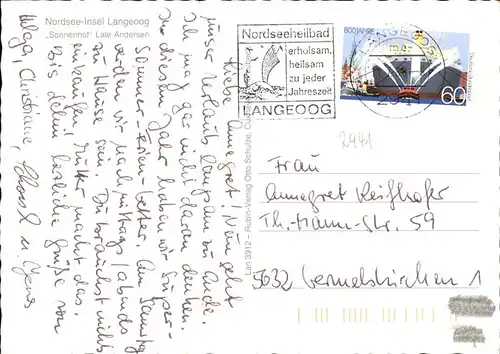 Nordsee-Insel Langeoog
„Sonnenhof“ Lale Andersen
Liebe Annegret! Nun geht
unser Urlaub langsam zu Ende.
Ich mag gar nicht daran denken.
In diesem Jahr haben wir Super-
Sommer-Ferien-Wetter. Am Samstag
werden wir nachmittags/abends
zu Hause sein. Du brauchst nichts
einkaufen, Mutter macht das.
Bis dahin herzliche Grüße von
Olga, Christiane, u. Jens
Nordseeheilbad
erholsam,
heilsam
zu jeder
Jahreszeit
LANGEOOG
LANGEOOG
2941
800 JAHRE
60
Län 3912 – Rubin-Verlag Otto Schulze,
2941
Frau
Annegret Reifhofer
Th.-Mann-Str. 59
5632 Wermelskirchen 1